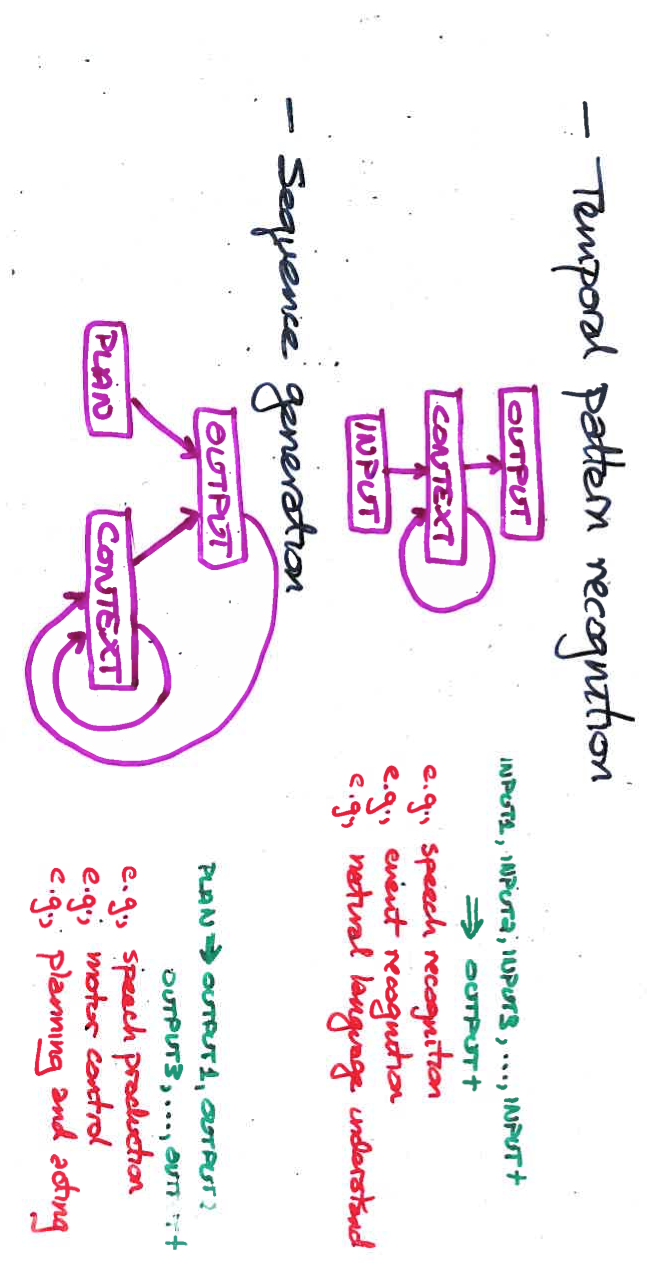 – Temporal pattern recognition
OUTPUT
CONTEXT
INPUT
INPUT1, INPUT2, INPUT3, ..., INPUT t
⇒ OUTPUT t
e.g., speech recognition
e.g., event recognition
e.g., natural language understand
– Sequence generation
OUTPUT
PLAN
CONTEXT
PLAN → OUTPUT1, OUTPUT
OUTPUT3, ...,
e.g., speech production
e.g., motor control
e.g., planning and acting